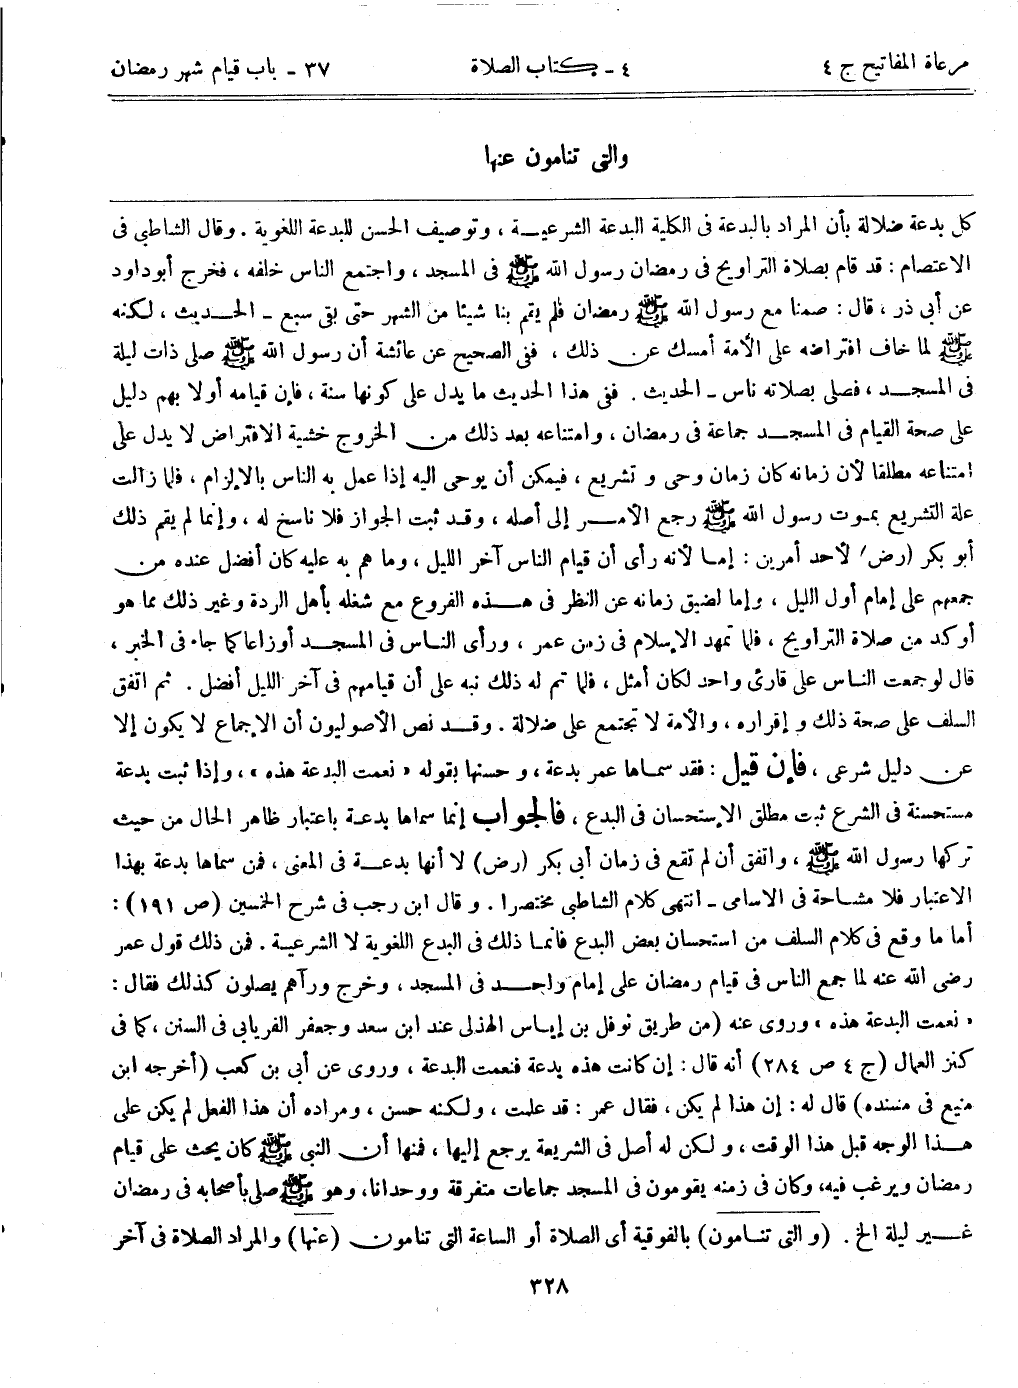 مرعاة المفاتيح ج ٤
٤ - كتاب الصلاة
٣٧ - باب قيام شهر رمضان
والتى تنامون عنها
كل بدعة ضلالة بأن المراد بالبدعة فى الكلية البدعة الشرعية ، وتوصيف الحسن للبدعة اللغوية . وقال الشاطبى فى
الاعتصام : قد قام بصلاة التراويح فى رمضان رسول الله ﷺ فى المسجد ، واجتمع الناس خلفه ، فخرج أبوداود
عن أبى ذر ، قال : صمنا مع رسول الله ﷺ رمضان فلم يقم بنا شيئا من الشهر حتى بقى سبع - الحديث ، لكنه
ﷺ لما خاف افتراضه على الأمة أمسك عن ذلك ، ففى الصحيح عن عائشة أن رسول الله ﷺ صلى ذات ليلة
فى المسجد ، فصلى بصلاته ناس - الحديث . ففى هذا الحديث ما يدل على كونها سنة ، فإن قيامه أولا بهم دليل
على صحة القيام فى المسجد جماعة فى رمضان ، وامتناعه بعد ذلك من الخروج خشية الافتراض لا يدل على
امتناعه مطلقا لأن زمانه كان زمان وحى و تشريع ، فيمكن أن يوحى اليه إذا عمل به الناس بالالزام ، فلما زالت
علة التشريع بموت رسول الله ﷺ رجع الأمر إلى أصله ، وقد ثبت الجواز فلا ناسخ له ، وإنما لم يقم ذلك
أبو بكر (رض) لأحد أمرين : إما لأنه رأى أن قيام الناس آخر الليل ، وما هم به عليه كان أفضل عنده من
جمعهم على إمام أول الليل ، وإما لضيق زمانه عن النظر فى هذه الفروع مع شغله بأهل الردة وغير ذلك مما هو
أوكد من صلاة التراويح ، فلما تمهد الإسلام فى زمن عمر ، ورأى الناس فى المسجد أوزاعا كما جاء فى الخبر ،
قال لو جمعت الناس على قارئ واحد لكان أمثل ، فلما تم له ذلك نبه على أن قيامهم فى آخر الليل أفضل . ثم اتفق
السلف على صحة ذلك و إقراره ، والأمة لا تجتمع على ضلالة . وقد نص الأصوليون أن الإجماع لا يكون إلا
عن دليل شرعى ، فإن قيل : فقد سماها عمر بدعة ، و حسنها بقوله « نعمت البدعة هذه » ، وإذا ثبت بدعة
مستحسنة فى الشرع ثبت مطلق الإستحسان فى البدع ، فالجواب إنما سماها بدعة باعتبار ظاهر الحال من حيث
تركها رسول الله ﷺ ، واتفق أن لم تقع فى زمان أبى بكر (رض) لا أنها بدعة فى المعنى ، فمن سماها بدعة بهذا
الاعتبار فلا مشاحة فى الاسامى - انتهى كلام الشاطبى مختصرا . و قال ابن رجب فى شرح الخمسين (ص ١٩١) :
أما ما وقع فى كلام السلف من استحسان بعض البدع فانما ذلك فى البدع اللغوية لا الشرعية . فمن ذلك قول عمر
رضى الله عنه لما جمع الناس فى قيام رمضان على إمام واحد فى المسجد ، وخرج ورآهم يصلون كذلك فقال :
« نعمت البدعة هذه » وروى عنه (من طريق نوفل بن إياس الهذلى عند ابن سعد وجعفر الفريابى فى السنن ، كما فى
كنز العمال (ج ٤ ص ٢٨٤) أنه قال : إن كانت هذه بدعة فنعمت البدعة ، وروى عن أبى بن كعب (أخرجه ابن
منيع فى مسنده) قال له : إن هذا لم يكن ، فقال عمر : قد علمت ، ولكنه حسن ، ومراده أن هذا الفعل لم يكن على
هذا الوجه قبل هذا الوقت ، و لكن له أصل فى الشريعة يرجع إليها ، فمنها أن النبى ﷺ كان يحث على قيام
رمضان ويرغب فيه، وكان فى زمنه يقومون فى المسجد جماعات متفرقة ووحدانا، وهو ﷺ صلى بأصحابه فى رمضان
غير ليلة الخ . (و التى تنامون) بالفوقية أى الصلاة أو الساعة التى تنامون (عنها) والمراد الصلاة فى آخر
٣٢٨